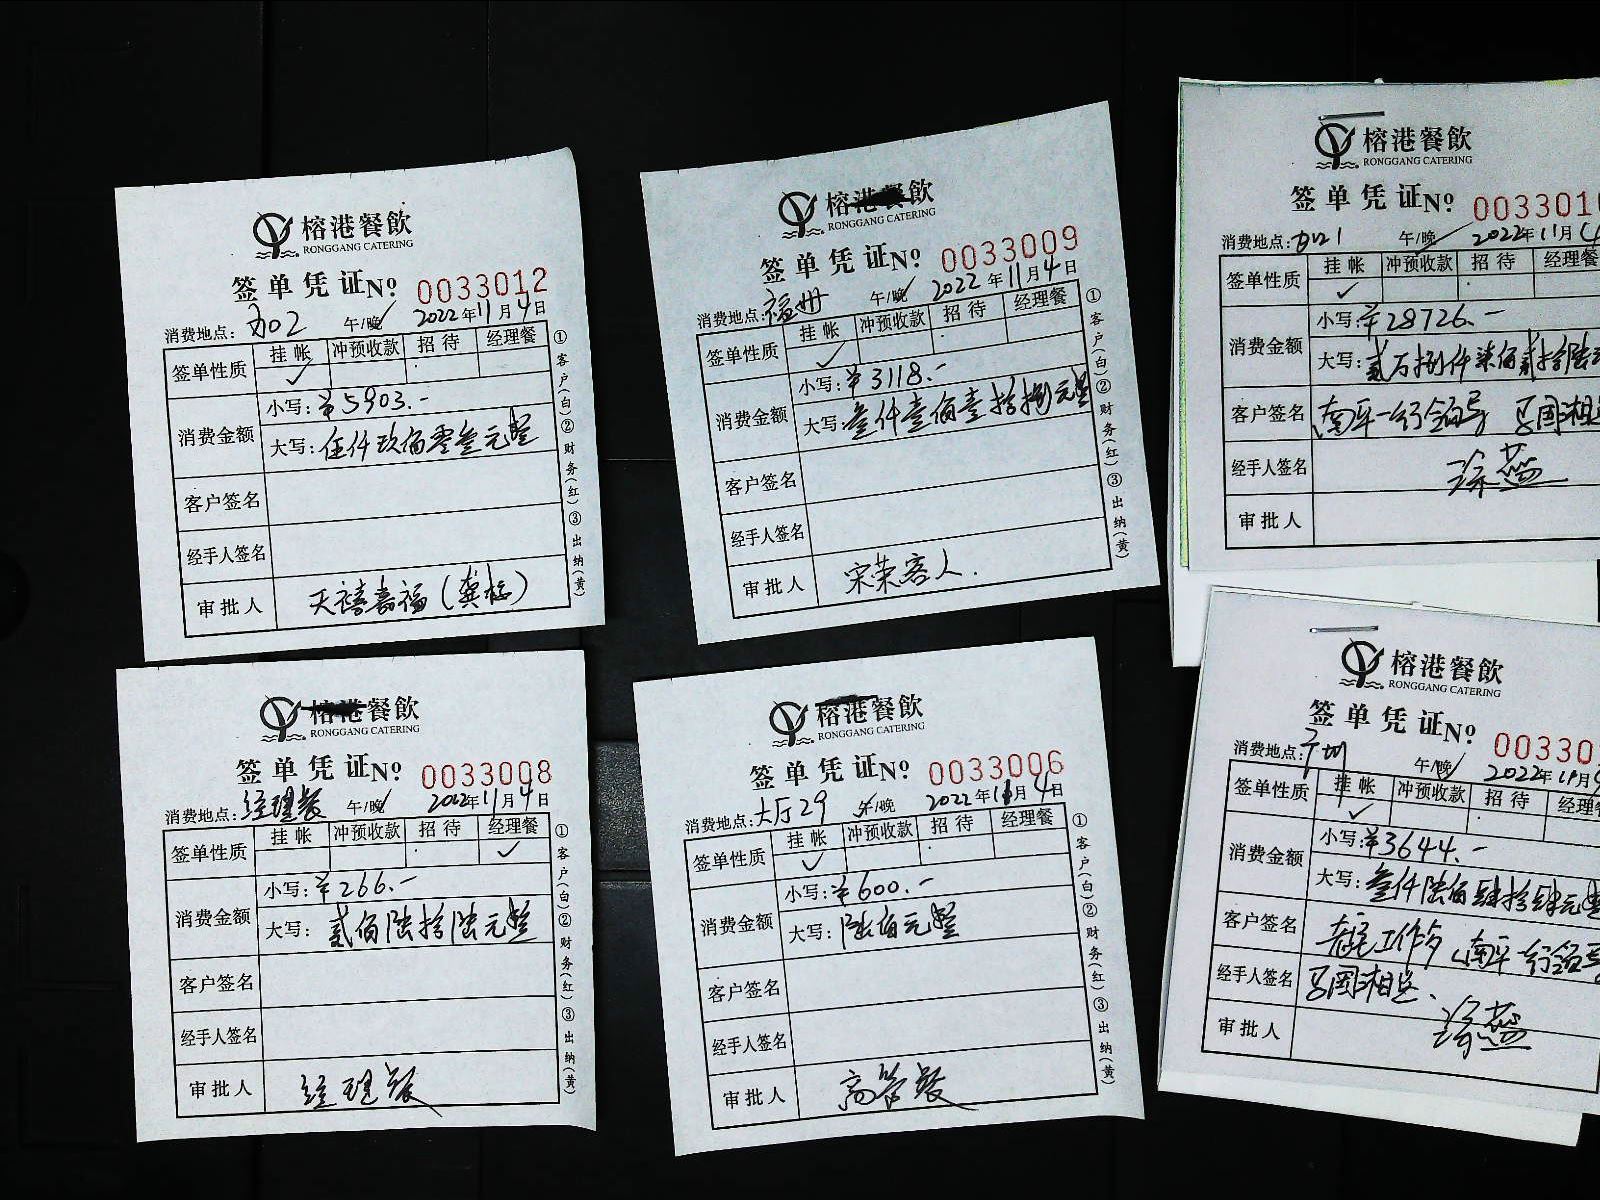 榕港餐飲
RONGGANG CATERING
签单凭证No 0033012
消费地点: 午/晚 2022年11月4日
签单性质 挂帐 冲预收款 招待 经理餐
✓
消费金额 小写:¥5903.-
大写:伍仟玖佰零叁元整
客户签名
经手人签名
审批人 天禧嘉福(龚标)
①客户(白)②财务(红)③出纳(黄)
榕港餐飲
RONGGANG CATERING
签单凭证No 0033009
消费地点:福州 午/晚 2022年11月4日
签单性质 挂帐 冲预收款 招待 经理餐
✓
消费金额 小写:¥3118.-
大写:叁仟壹佰壹拾捌元整
客户签名
经手人签名
审批人 宋荣客人.
①客户(白)②财务(红)③出纳(黄)
榕港餐飲
RONGGANG CATERING
签单凭证No 003301
消费地点: 午/晚 2022年11月
签单性质 挂帐 冲预收款 招待 经理餐
✓
消费金额 小写:¥28726.-
大写:贰万捌仟柒佰贰拾陆
客户签名 南平一行领导
经手人签名 涂燕
审批人
榕港餐飲
RONGGANG CATERING
签单凭证No 0033008
消费地点:经理餐 午/晚 2022年11月4日
签单性质 挂帐 冲预收款 招待 经理餐
✓
消费金额 小写:¥266.-
大写:贰佰陆拾陆元整
客户签名
经手人签名
审批人 经理餐
①客户(白)②财务(红)③出纳(黄)
榕港餐飲
RONGGANG CATERING
签单凭证No 0033006
消费地点:大厅29 午/晚 2022年11月4日
签单性质 挂帐 冲预收款 招待 经理餐
✓
消费金额 小写:¥600.-
大写:陆佰元整
客户签名
经手人签名
审批人 高管餐
①客户(白)②财务(红)③出纳(黄)
榕港餐飲
RONGGANG CATERING
签单凭证No 00330
消费地点:广州 午/晚 2022年11月
签单性质 挂帐 冲预收款 招待 经理
✓
消费金额 小写:¥3644.-
大写:叁仟陆佰肆拾肆元整
客户签名 工作 南平一行领导
经手人签名
审批人 涂燕